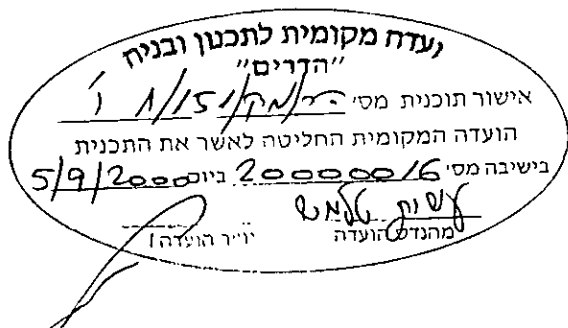 ועדה מקומית לתכנון ובניה
"הדרים"
אישור תוכנית מס' הר/מק/151/א/1
הועדה המקומית החליטה לאשר את התכנית
בישיבה מס' 20000016 ביום 5/9/2000
מהנדס הועדה יו״ר הועדה